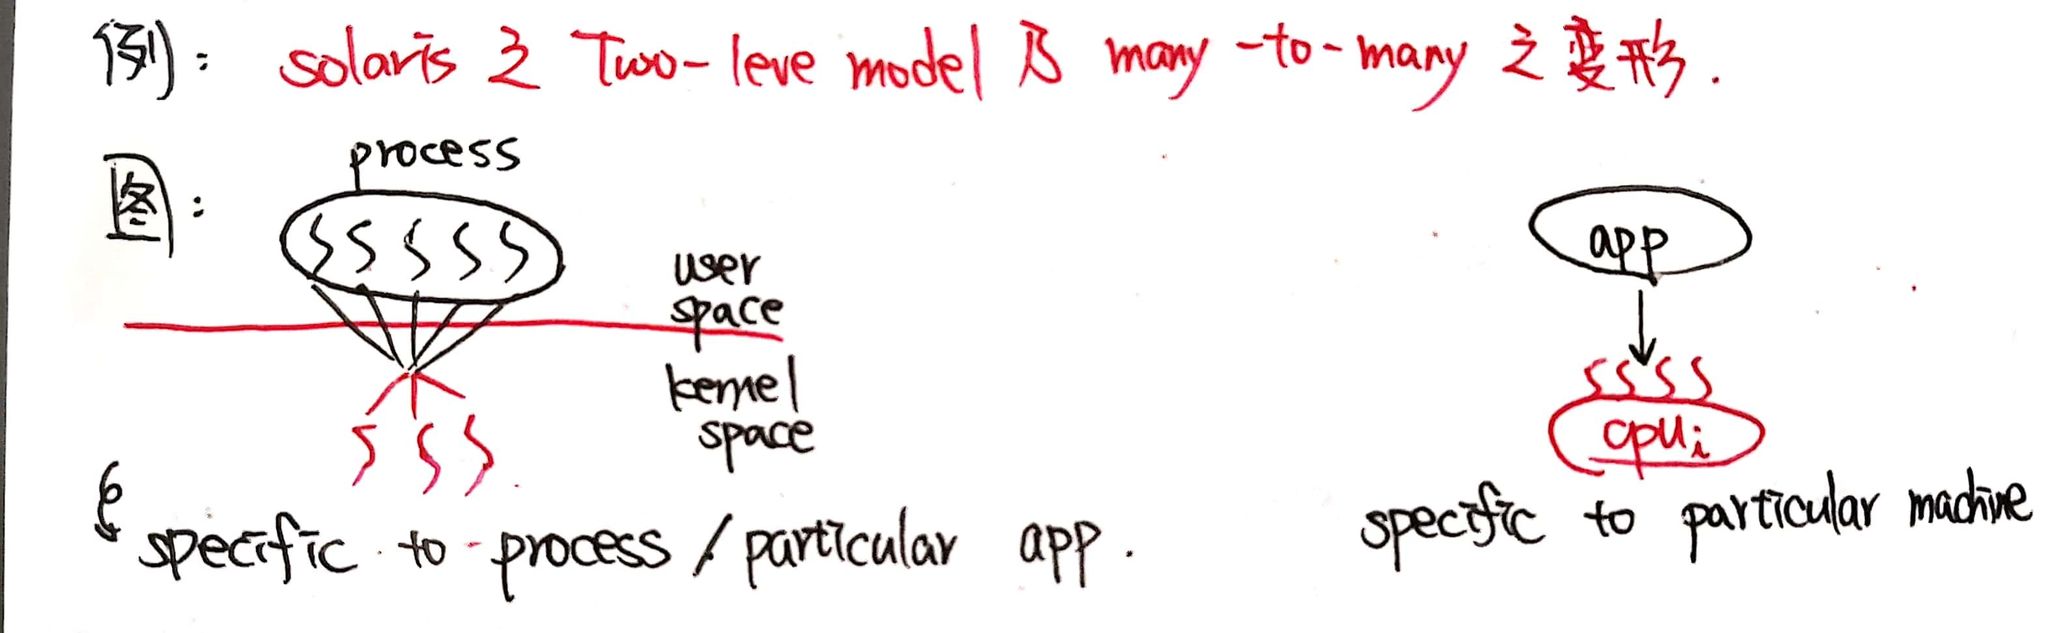 例: solaris 之 Two-leve model 及 many-to-many 之变形.
图:
process
user
space
kernel
space
specific to process / particular app.
app
cpui
specific to particular machine